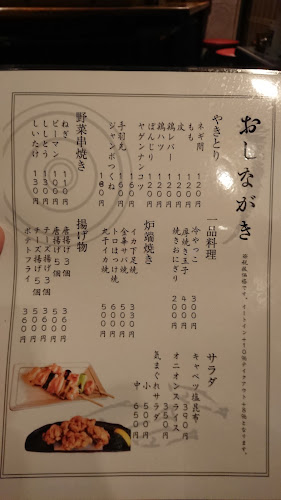 おしながき
※税抜価格です。イートイン+10%テイクアウト+8%となります。
やきとり
ネギ間 120円
もも 120円
皮 120円
鶏レバー 120円
鶏ハツ 120円
ぼんじり 120円
ヤゲンナンコツ 120円
手羽先 160円
ジャンボつくね 180円
野菜串焼き
ねぎ 110円
ピーマン 110円
ししとう 130円
しいたけ 130円
一品料理
冷やっこ 300円
厚焼き玉子 400円
焼きおにぎり 200円
炉端焼き
イカ下足焼 330円
金華サバ焼
トロほっけ焼
丸干イカ焼
揚げ物
唐揚げ3個 360円
唐揚げ5個 500円
チーズ揚げ3個 360円
チーズ揚げ5個 500円
ポテトフライ 360円
サラダ
キャベツ塩昆布 390円
オニオンスライス 350円
気まぐれサラダ
小 500円
中 650円